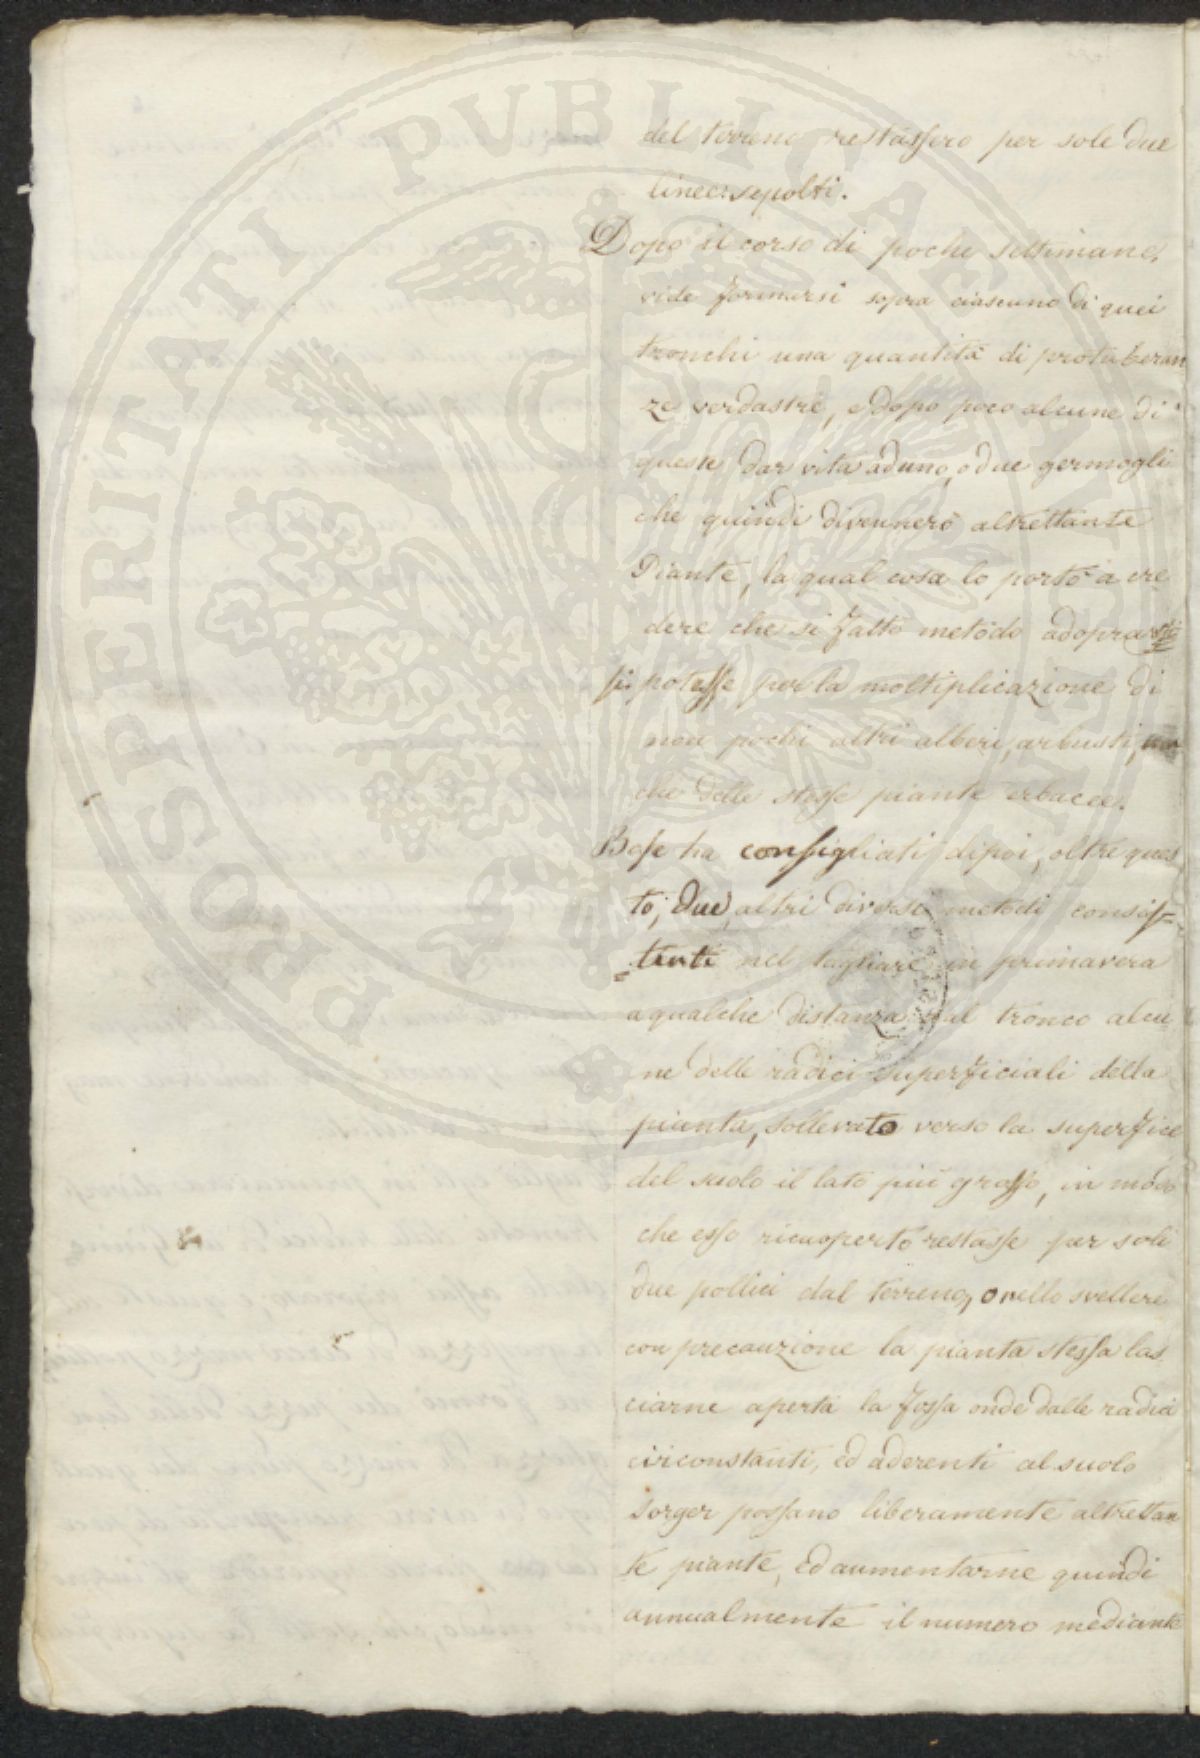 PROSPERITATI PUBLICAE AUGENDAE
del terreno restassero per sole due
linee: sepolti.
Dopo il corso di poche settimane,
vide formarsi sopra ciascuno di quei
tronchi una quantità di protuberan
ze verdastre, e dopo poco alcune di
queste dar vita ad uno, o due germogli
che quindi divennero altrettante
Piante, la qual cosa lo portò a cre
dere che si fatto metodo adoprar
si potesse per la moltiplicazione di
non pochi altri alberi, arbusti,
che delle stesse piante erbacee.
Bosc ha consigliati dipoi, oltre ques
to, due altri diversi metodi consis=
=tenti nel tagliare in primavera
a qualche distanza dal tronco alcu
ne delle radici superficiali della
pianta, sollevato verso la superfice
del suolo il lato più grosso, in modo
che esso ricuoperto restasse per soli
due pollici dal terreno, o nello svellere
con precauzione la pianta stessa las
ciarne aperta la fossa onde dalle radici
circonstanti, ed aderenti al suolo
sorger possano liberamente altrettan
te piante, ed aumentarne quindi
annualmente il numero mediante